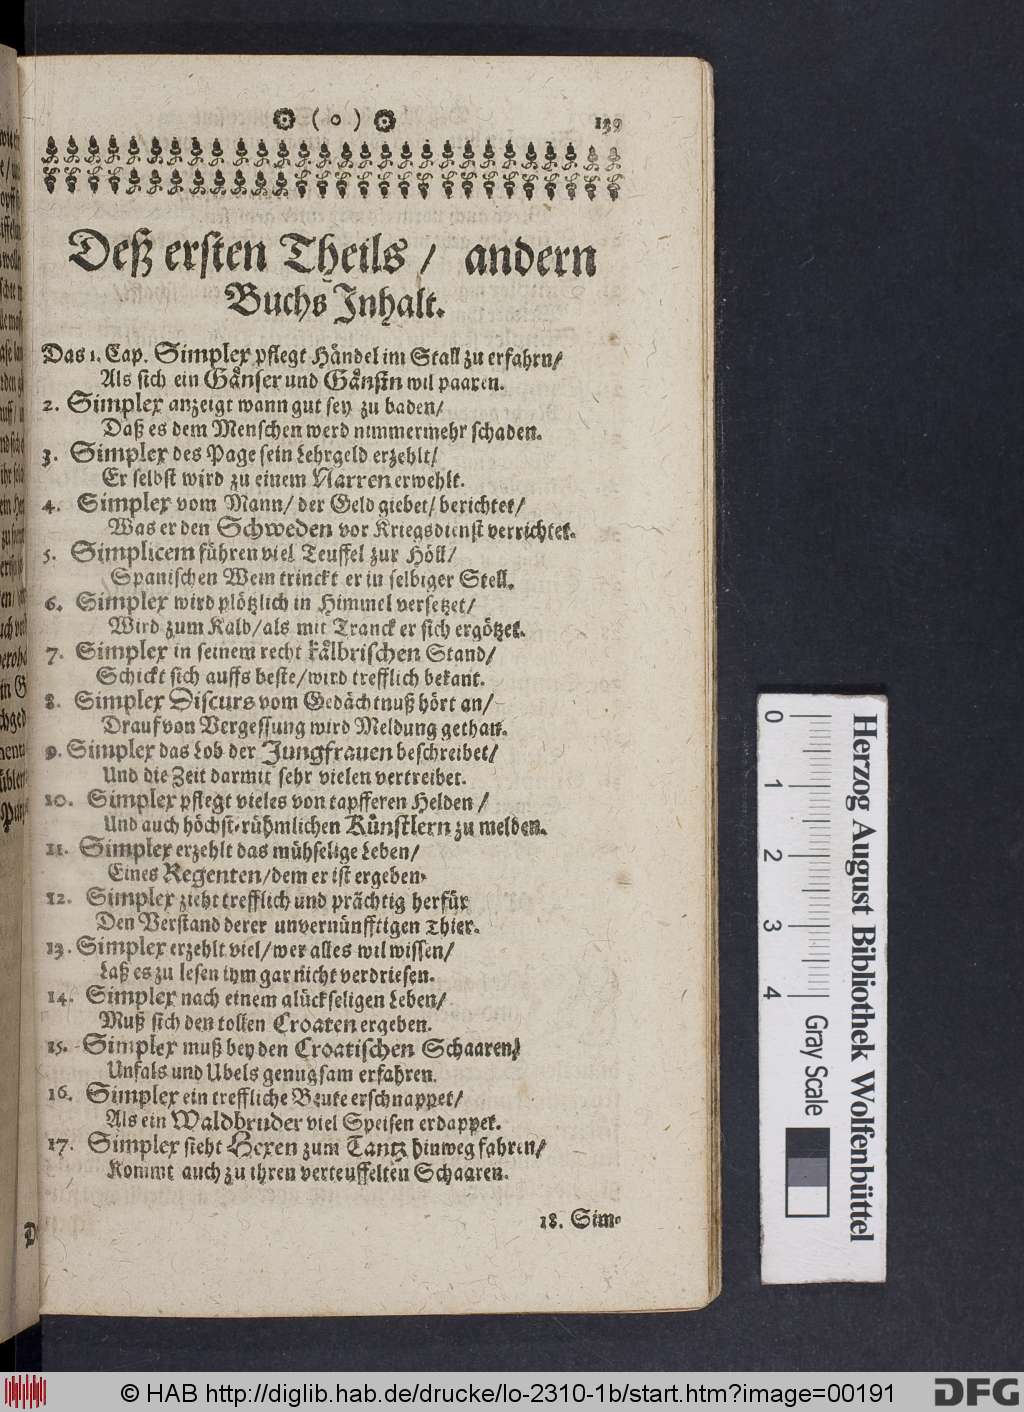 ( o ) 139
Deß ersten Theils / andern
Buchs Inhalt.
Das 1. Cap. Simplex pflegt Händel im Stall zu erfahrn/
Als sich ein Gånser und Gånsin wil paaren.
2. Simplex anzeigt wann gut sey zu baden/
Daß es dem Menschen werd nimmermehr schaden.
3. Simplex des Page sein Lehrgeld erzehlt/
Er selbst wird zu einem Narren erwehlt.
4. Simplex vom Mann/ der Geld giebet/ berichtet/
Was er den Schweden vor Kriegsdienst verrichtet.
5. Simplicem führen viel Teuffel zur Höll/
Spanischen Wein trinckt er in selbiger Stell.
6. Simplex wird plötzlich in Himmel versetzet/
Wird zum Kalb/ als mit Tranck er sich ergötzet.
7. Simplex in seinem recht kålbrischen Stand/
Schickt sich auffs beste/ wird trefflich bekant.
8. Simplex Discurs vom Gedächtnuß hört an/
Drauf von Vergessung wird Meldung gethan.
9. Simplex das Lob der Jungfrauen beschreibet/
Und die Zeit darmit sehr vielen vertreibet.
10. Simplex pflegt vieles von tapfferen Helden /
Und auch höchst-rühmlichen Kůnstlern zu melden.
11. Simplex erzehlt das mühselige Leben/
Eines Regenten/ dem er ist ergeben.
12. Simplex zieht trefflich und prächtig herfür
Den Verstand derer unvernünfftigen Thier.
13. Simplex erzehlt viel/ wer alles wil wissen/
Laß es zu lesen ihm gar nicht verdriesen.
14. Simplex nach einem glückseligen Leben/
Muß sich den tollen Croaten ergeben.
15. Simplex muß bey den Croatischen Schaaren/
Unfals und Ubels genugsam erfahren.
16. Simplex ein treffliche Beute erschnappet/
Als ein Waldbruder viel Speisen erdappet.
17. Simplex sieht Hexen zum Tantz hinweg fahren/
Kommt auch zu ihren verteuffelten Schaaren.
18. Sim-
0 1 2 3 4
Gray Scale
Herzog August Bibliothek Wolfenbüttel
© HAB http://diglib.hab.de/drucke/lo-2310-1b/start.htm?image=00191
DFG